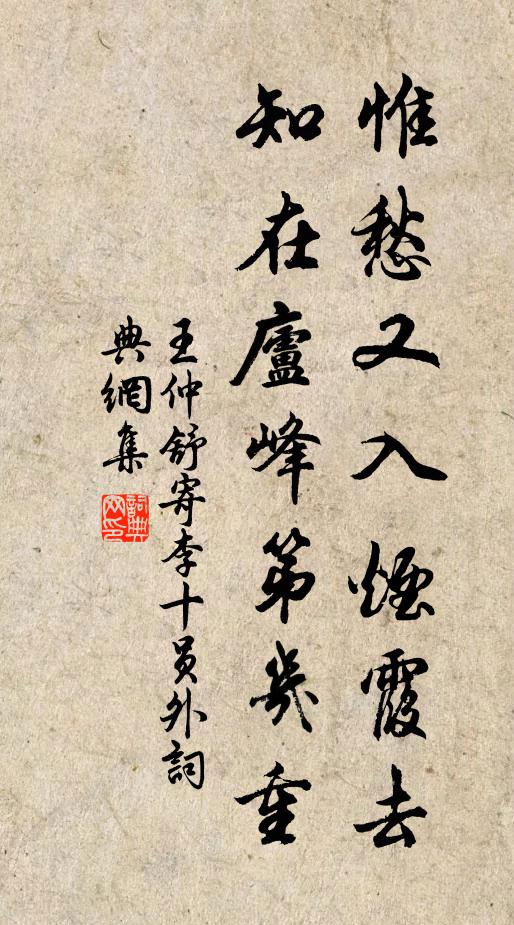 惟愁又入煙霞去
知在廬峰第幾重
王仲舒寄李十員外詞
典網集
詞典網印